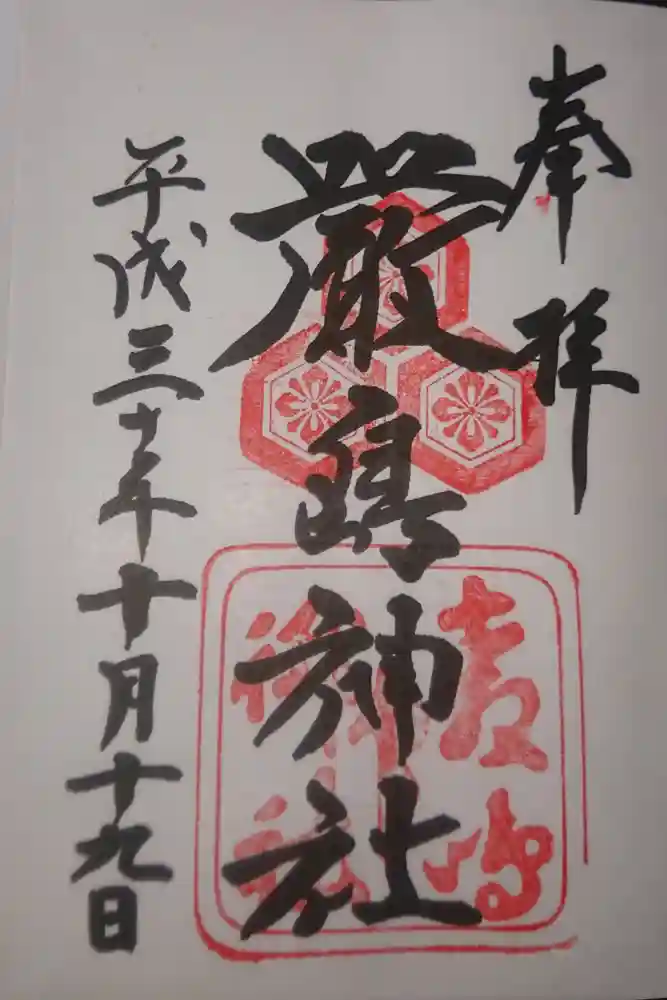 奉拝
厳島神社
平成三十年十月十九日